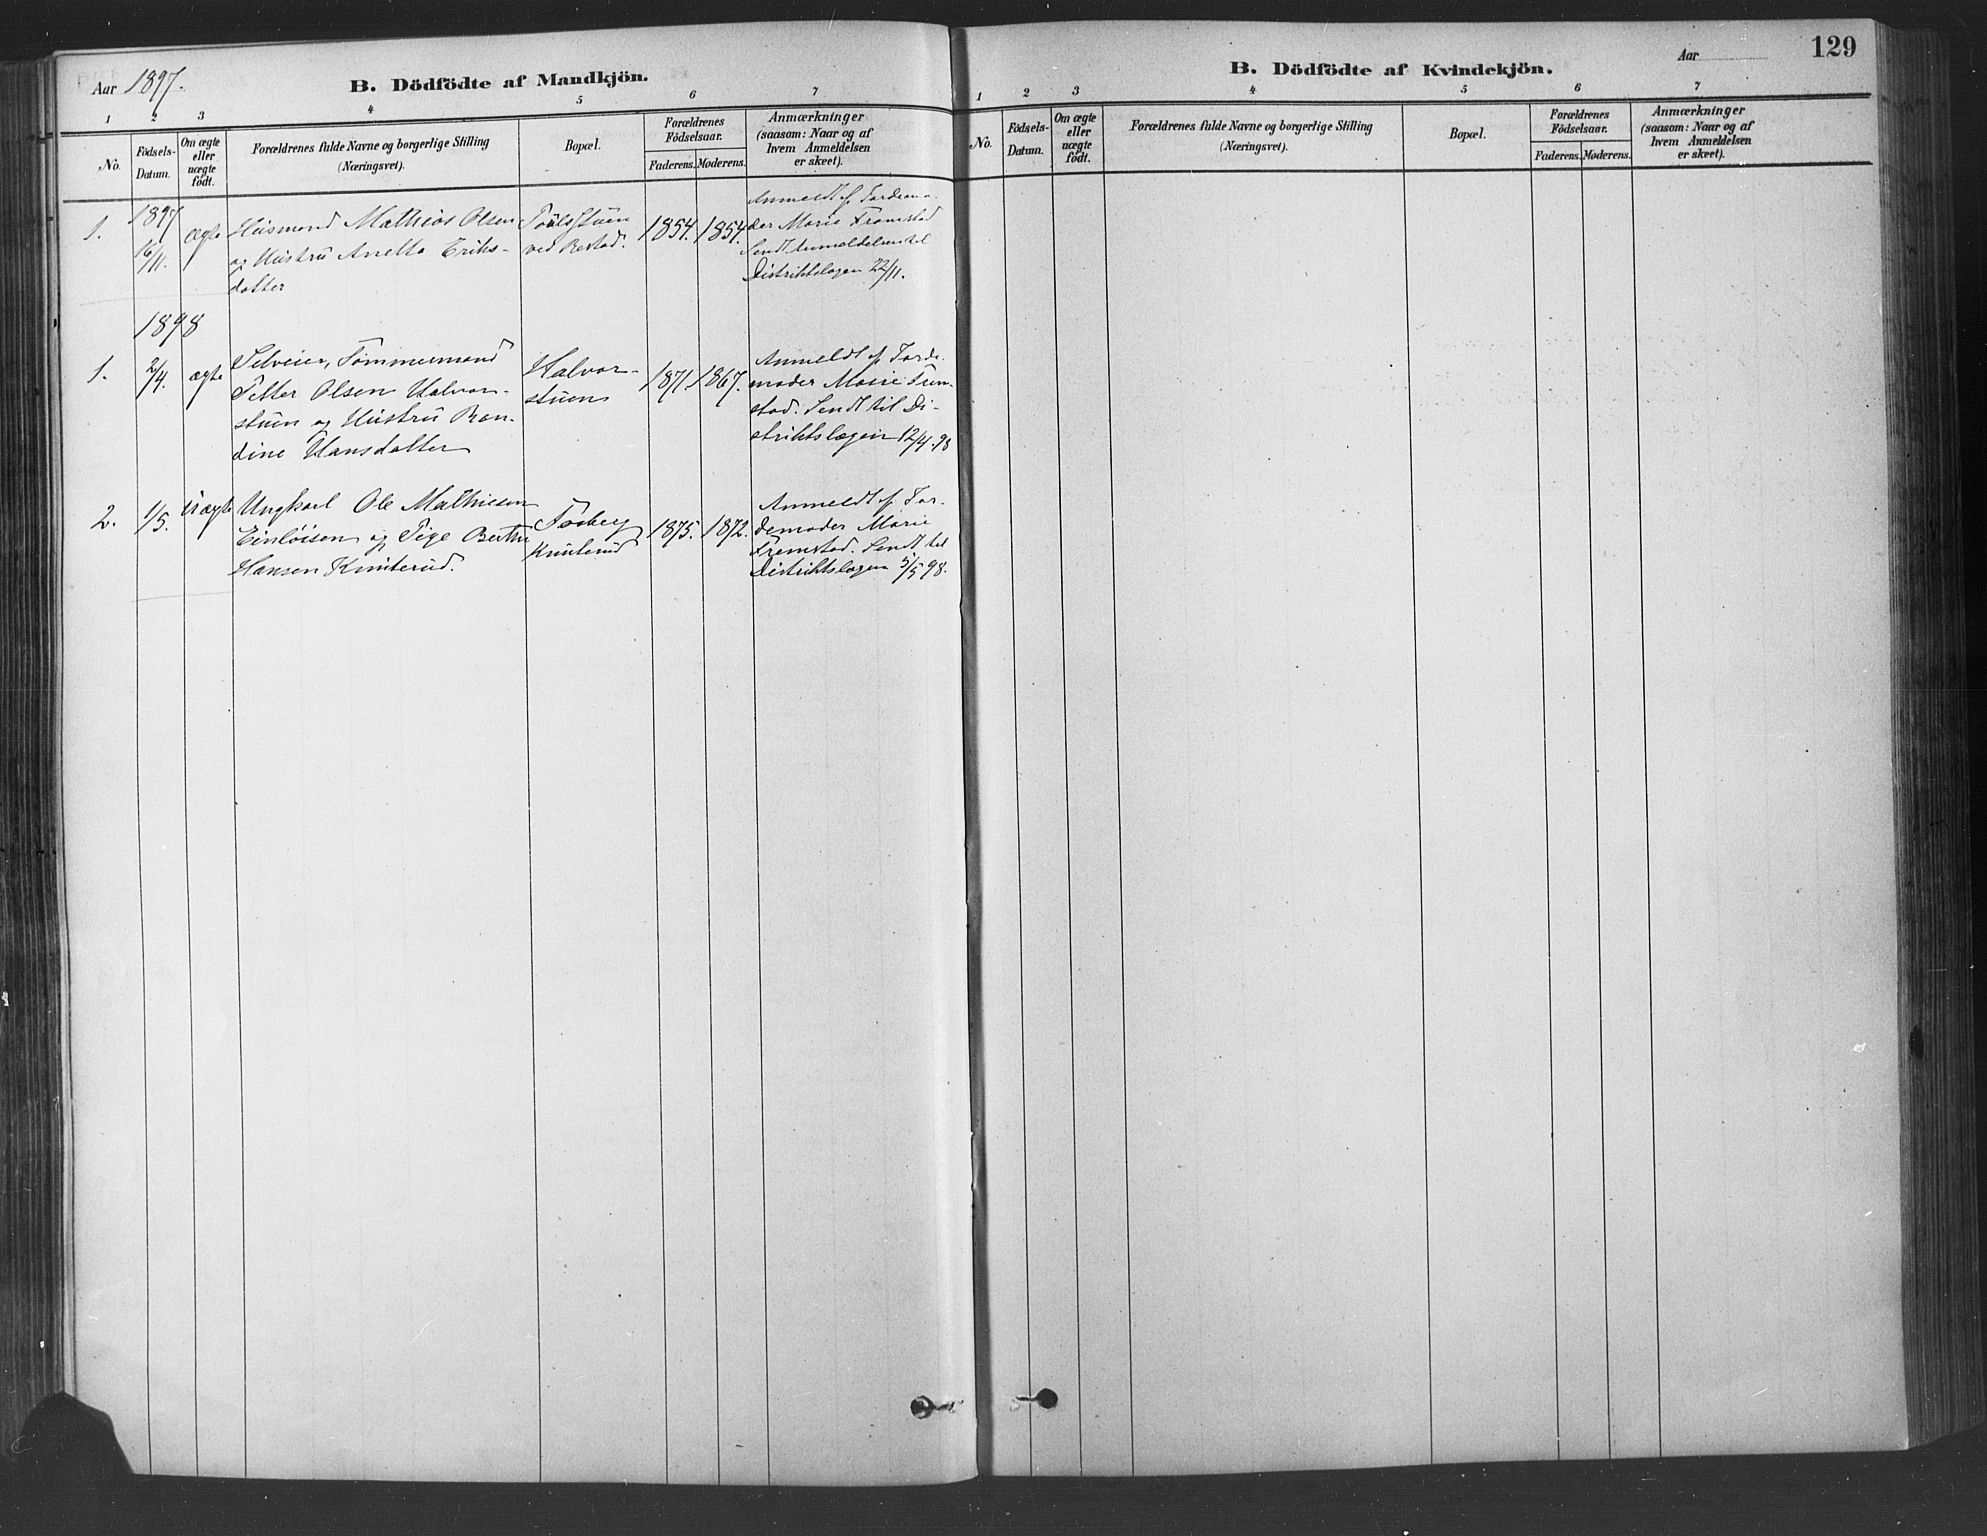 Aar 1897.
B. Dödfödte af Mandkjön.
1 2 3 4 5 6 7
No.
Födsels-
Datum.
Om ægte
eller
uægte
födt.
Forældrenes fulde Navne og borgerlige Stilling
(Næringsvei).
Bopæl.
Forældrenes
Födselsaar.
Faderens. Moderens.
Anmærkninger
(saasom: Naar og af
hvem Anmeldelsen
er skeet).
1.
1897
16/11.
ægte
Husmand Mathias Olsen
og Hustru Anette Eriks-
datter
ved
1854. 1854.
Anmeldt af Jordemo-
der Marie Fremstad
Sendt Anmeldelsen til
Distriktslægen 22/11.
1898
1.
2/4.
ægte
Selveier, Tømmermand
Petter Olsen Halvor-
stuen og Hustru Ran-
dine Hansdatter
Halvor-
stuen
1871. 1867.
Anmeldt af Jorde-
moder Marie Frem-
stad. Sendt til Di-
striktslægen 12/4. 98
2.
1/5.
uægte
Ungkarl Ole Mathissen
og Pige Berthe
Hansen Knuterud.
Faaberg
Knuterud
1875. 1872.
Anmeldt af Jor-
demoder Marie
Fremstad. Sendt til
Distriktslægen 5/5 98.
Aar
129
B. Dödfödte af Kvindekjön.
1 2 3 4 5 6 7
No.
Födsels-
Datum.
Om ægte
eller
uægte
födt.
Forældrenes fulde Navne og borgerlige Stilling
(Næringsvei).
Bopæl.
Forældrenes
Födselsaar.
Faderens. Moderens.
Anmærkninger
(saasom: Naar og af
hvem Anmeldelsen
er skeet).